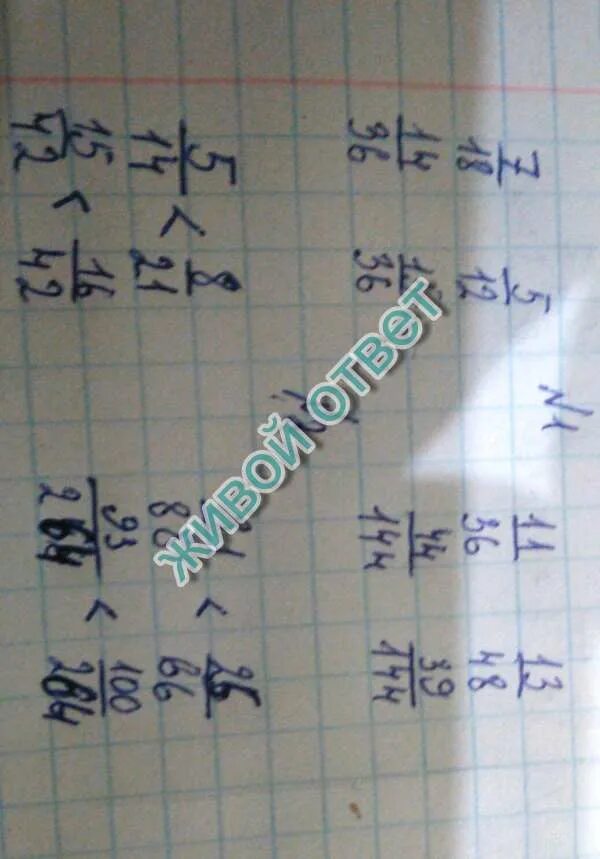 N1
7/18 5/12 11/36 13/48
14/36 15/36 44/144 39/144
5/14 < 8/21 < 66
15/42 < 16/42 93/264 < 100/264
ЖИВОЙ ОТВЕТ